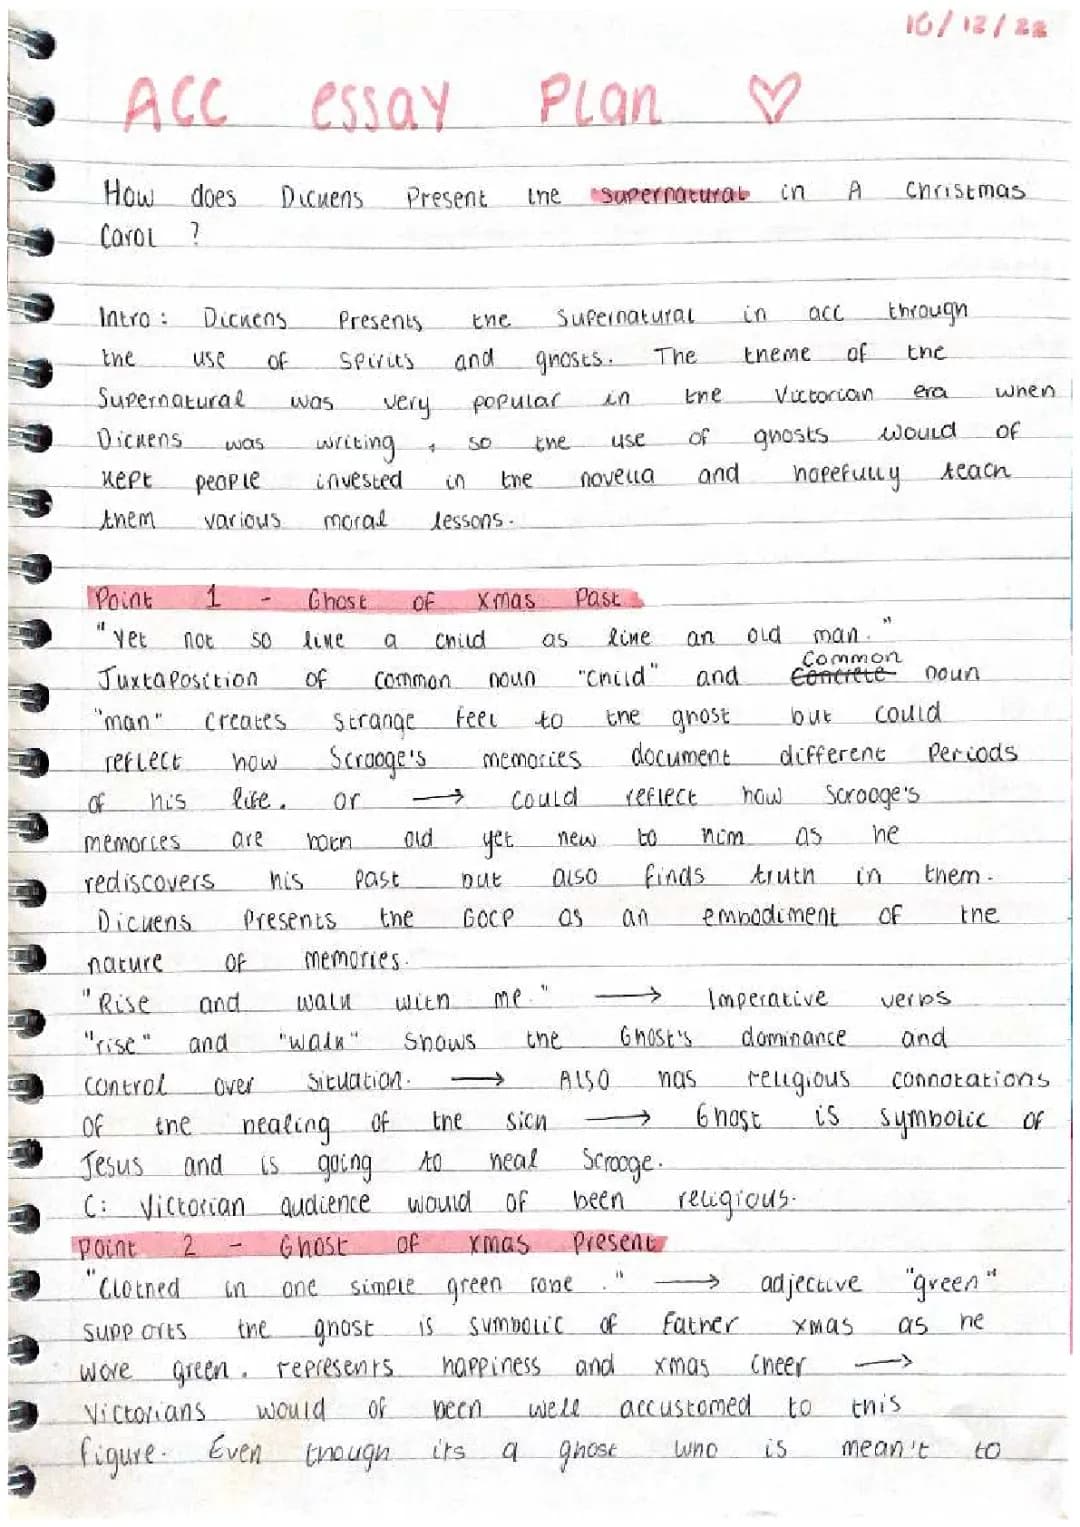 16/12/22
ACC essay Plan ♡
How does Dickens Present the supernatural in A Christmas
Carol ?
Intro : Dickens Presents the Supernatural in acc through
the use of spirits and ghosts. The theme of the
Supernatural was very popular in the Victorian era when
Dickens was writing , so the use of ghosts would of
kept people invested in the novella and hopefully teach
them various moral lessons.
Point 1 - Ghost of Xmas Past
"Yet not so like a child as like an old man."
Juxtaposition of common noun "Child" and Concrete Common noun
"man" creates strange feel to the ghost but could
reflect how Scrooge's memories document different Periods
of his life. or → could reflect how Scrooge's
memories are both old yet new to him as he
rediscovers his past but also finds truth in them.
Dickens Presents the GOCP as an embodiment of the
nature of memories.
"Rise and walk with me." → Imperative verbs
"rise" and "walk" shows the Ghost's dominance and
control over situation. → Also has religious connotations
of the healing of the sick → Ghost is symbolic of
Jesus and is going to heal Scrooge.
C: Victorian audience would of been religious.
Point 2 - Ghost of Xmas Present
"Clothed in one simple green robe ." → adjective "green"
supports the ghost is symbolic of Father xmas as he
wore green. represents happiness and xmas cheer →
Victorians would of been well accustomed to this
figure. Even though its a ghost who is mean't to